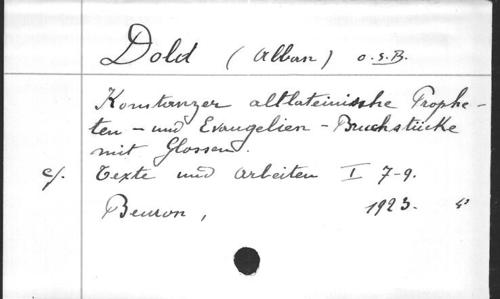 Dold (Alban) o.s.B.
Konstanzer altlateinische Prophe-
ten - und Evangelien - Bruchstücke
mit Glossen.
c/. Texte und Arbeiten I 7-9.
Beuron, 1923. 4°